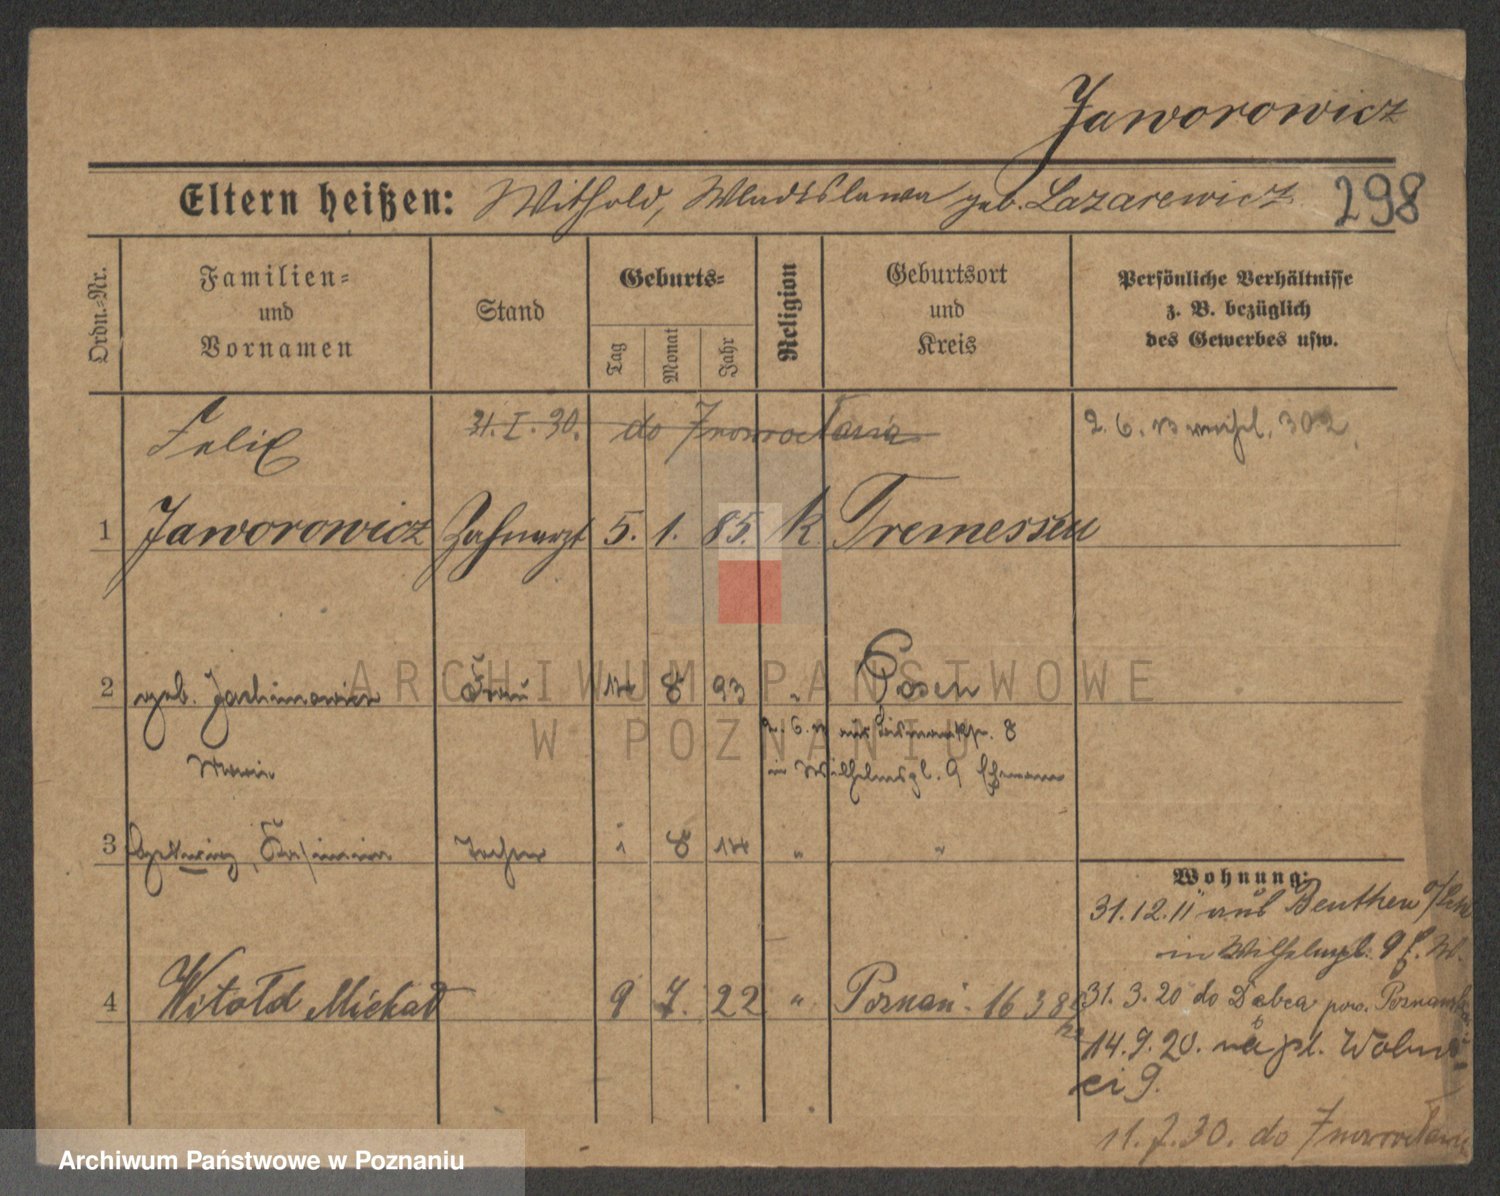 Jaworowicz
Eltern heißen: Withold, Wladislawa geb. Lazarewicz 298
Ordn.-Nr.
Familien-
und
Vornamen
Stand
Geburts-
Tag
Monat
Jahr
Religion
Geburtsort
und
Kreis
Persönliche Verhältnisse
z. B. bezüglich
des Gewerbes usw.
Felix 31. I. 30. do Inowrocławia 2. 6. 302
1 Jaworowicz Zahnarzt 5. 1. 85. k Tremessen
2 geb. Jachimowicz Frau 14 8 93 " Posen
2. 6. aus Bismarckstr. 8
Maria in Wilhelmspl. 9 Ehemann
3 Kasimira Tochter 1 8 14 " "
Wohnung:
31.12.11 aus Beuthen
in Wilhelmspl. 9
4 Witold Michał 9 7. 22 " Poznań 31. 3. 20 do Dębca pow. Poznański
14. 9. 20. na pl. Wolnoś-
ci 9.
11. 7. 30. do Inowrocławia
ARCHIWUM PAŃSTWOWE
W POZNANIU
Archiwum Państwowe w Poznaniu